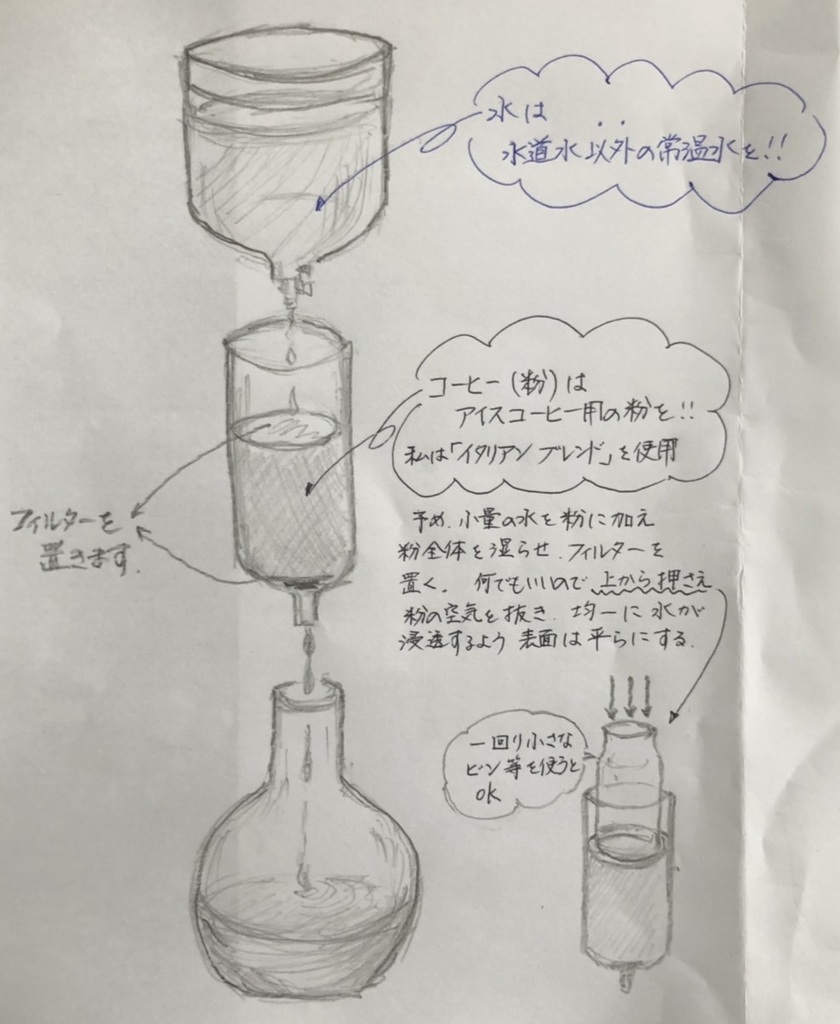 水は
水道水以外の常温水を!!
コーヒー(粉)は
アイスコーヒー用の粉を!!
私は「イタリアンブレンド」を使用
フィルターを
置きます.
予め.小量の水を粉に加え
粉全体を湿らせ.フィルターを
置く. 何でもいいので上から押さえ
粉の空気を抜き.均一に水が
浸透するよう表面は平らにする.
一回り小さな
ビン等を使うと
OK